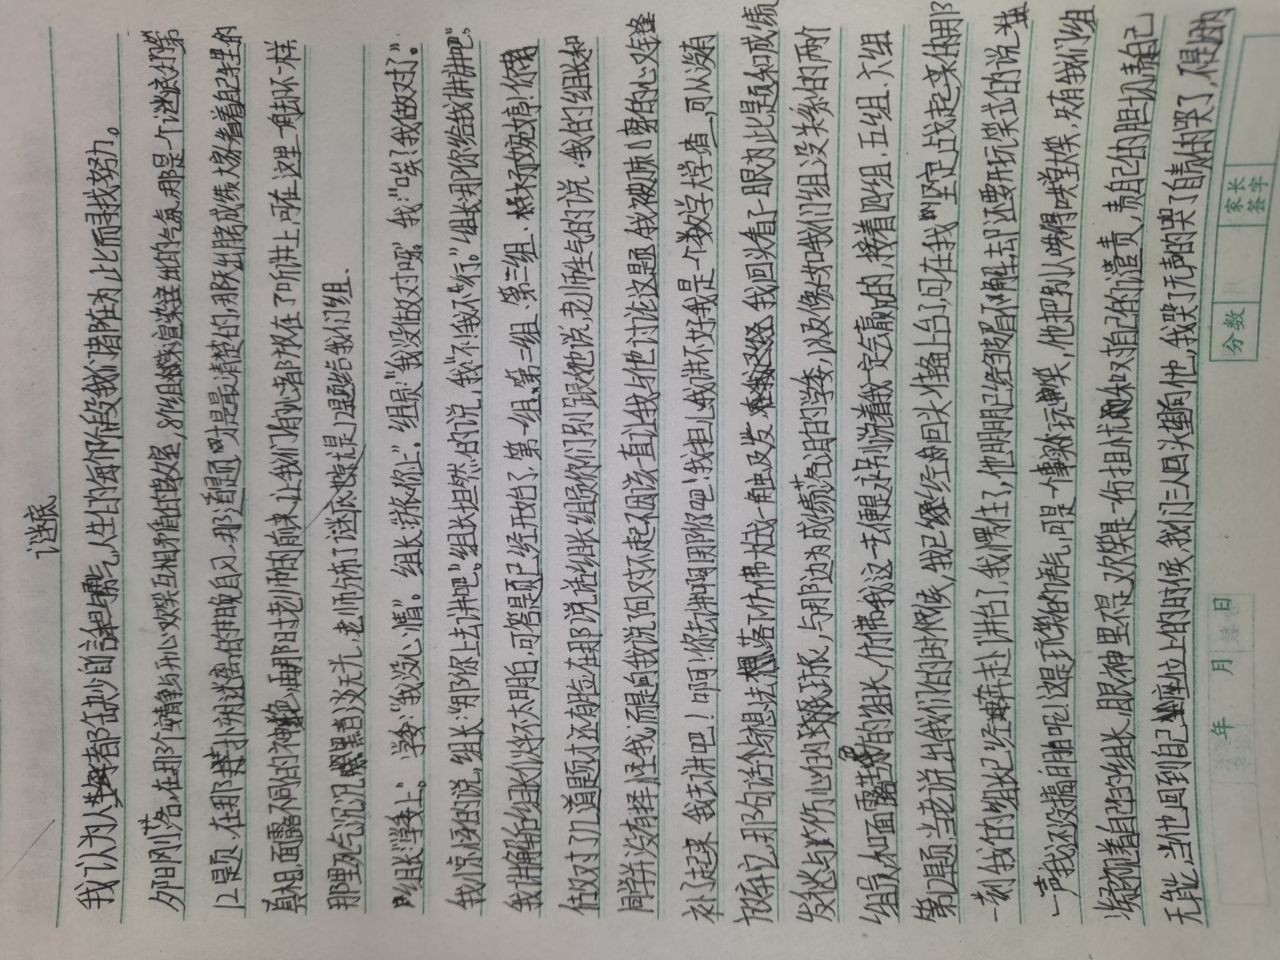 谜底
我认为人生每都缺少自信和勇气,人生的每个阶段我们都在为此而寻找努力。
夕阳刚落,在那个安静与开心欢笑互相矛盾的教室,8个组渲染的气氛,那是一个谜底的第
12题,在那扑朔迷离的晚自习,那道题才是最清楚的,那天出月考成绩大家看着自己手里的
真相,面露不同的神色,由那时老师的前来让我们的心都放在了听讲上,可在这里一角却不一样
那里死气沉沉黑暗无光,老师分布了谜底12题给我们组.
组长:"学委上"。学委:"我没心情"。组长:"你上"。组员:"我没做对呀" 我:"唉?我做对了。"
我惊悟的说,组长:"那你上去讲吧。"组长坦然的说,我"不!我不行。"组长:那你给我讲讲吧。
我讲解后组长似乎不太明白,可答题已经开始了,第一组、第二组、第三组、杨婉婷!你
做对了几道题才还有脸在那说话组长组员你们别跟她说,老师生气的说,我的组长和
同学并没有择怪我,而是向我说了句对不起不因该一直让我与他讨论这题,我被刺穿的心又缝
补了起来 我去讲吧!啊!你去讲啊那你吧!我担心我讲不好我是一个数学大学渣,可从没有
放弃它,那句话与想法落下仿佛大战一角虫及发,我回头看了一眼为此题和成绩
发愁与伤心的,与那边为成绩落泪的学委,以及像如我们组没关系的两个
组员,和面露苦的组长,仿佛我这一去便是永别说着我一定会赢的,接着四组、五组、六组
第12题,当老说出我们的时候,我已经回头准备上台了,可在我坚定战起来的那
一刻我的组长已经奔赴讲台了,我愣住了,他明明已经皱眉不解,却还要开玩笑式的说
一声我还没搞明白呢!这是玩笑的语气,可是一个事实玩笑,他把别人哄得哄堂大笑,只有我们组
凝视着自己的组长,眼神里不是欢笑是一份担忧和对自己的谴责,责自己的胆切责自己
无能,当他回到自己座位上的时候,我们三人回头望向他,我哭了无声的哭了自责的哭了,不是因为
年 月 日
分数
家长
签字